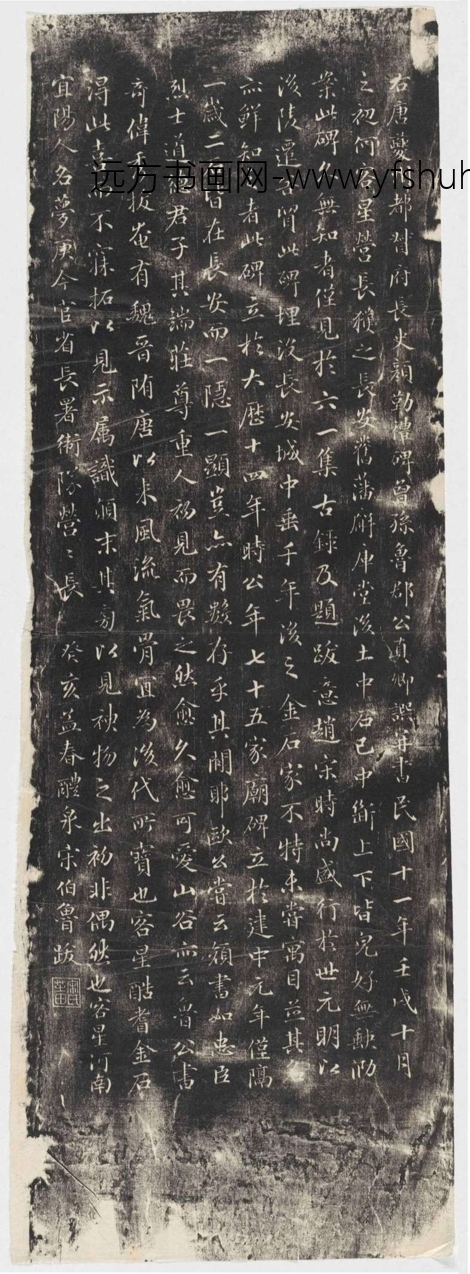 右唐夔州都督府長史顏勤禮碑曾孫魯郡公真卿譔并書民國十一年壬戌十月
之初何客星營長獲之長安舊藩廨庫堂後土中石已中斷上下皆完好無缺泐
案此碑久無知者僅見於六一集古錄及題跋意趙宋時尚盛行於世元明以
後陵遷谷貿此碑埋沒長安城中垂千年後之金石家不特未嘗寓目並其名
亦鮮知之者此碑立於大歷十四年時公年七十五家廟碑立於建中元年僅隔
一歲二碑皆在長安而一隱一顯豈亦有數存乎其間耶歐公嘗云顏書如忠臣
烈士道德君子其端莊尊重人初見而畏之然愈久愈可愛山谷亦云魯公書
奇偉秀拔奄有魏晉隋唐以來風流氣骨宜為後代所寶也客星酷耆金石
得此喜而不寐拓以見示屬識顛末其旁以見神物之出初非偶然也客星河南
宜陽人名夢庚今官省長署衛隊營〻長 癸亥孟春醴泉宋伯魯跋
远方书画网-www.yfshuh